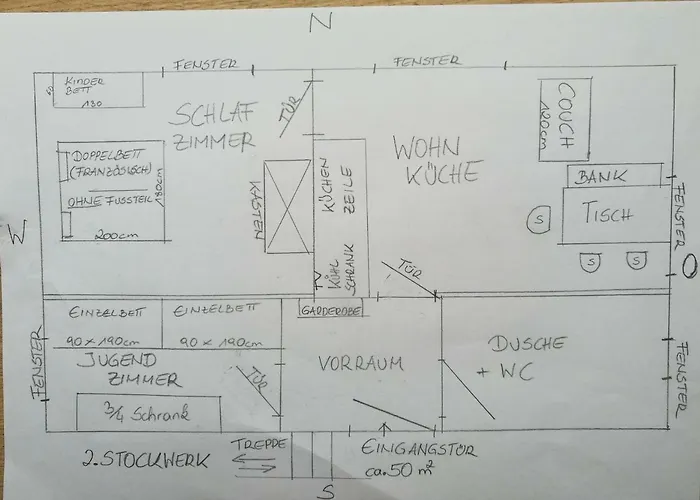 N
FENSTER
FENSTER
KINDER
BETT
130
SCHLAF
ZIMMER
TÜR
COUCH
120cm
WOHN
KÜCHE
DOPPELBETT
(FRANZÖSISCH)
OHNE FUSSTEIL
180cm
200cm
KASTEN
KÜCHEN
ZEILE
KÜHL
SCHRANK
TV
BANK
TISCH
S
S
S
FENSTER
W
O
TÜR
EINZELBETT
90 x 190cm
EINZELBETT
90 x 190cm
GARDEROBE
FENSTER
JUGEND
ZIMMER
TÜR
VORRAUM
DUSCHE
+ WC
FENSTER
3/4 Schrank
2. STOCKWERK
TREPPE
EINGANGSTÜR
ca. 50 m²
S